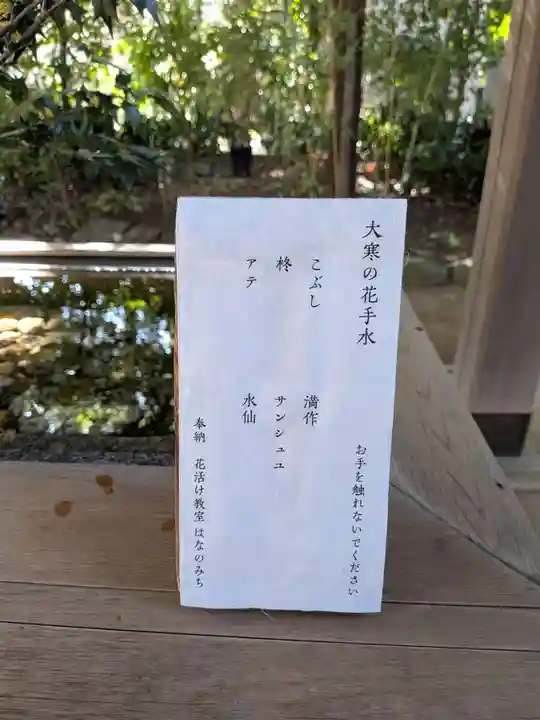 大寒の花手水
お手を触れないでください
こぶし　満作
柊　サンシュユ
アテ　水仙
奉納　花活け教室 はなのみち